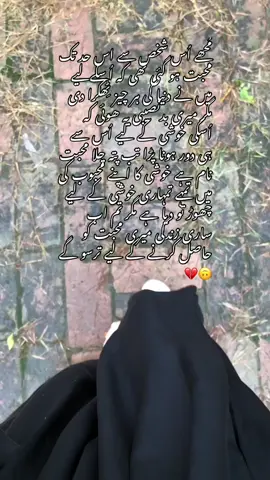 مُجھے اُس شخص سے اس حد تک
محبت ہو گئی تھی کہ اُسکے لیے
میں نے دُنیا کی ہر چیز ٹھکرا دی
مگر میری بد نصیبی یہ ہوئی کہ
اُسکی خوشی کے لیے اُس سے
ہی دور ہونا پڑا تب پتہ چلا محبت
نام ہے خوشی کا اپنے محبوب کی
میں نے تمہیں تمہاری خوشی کے لیے
چھوڑ تو دیا ہے مگر تم اب
ساری زندگی میری محبت کو
حاصل کرنے کے لیے ترسو گے
💔🙃